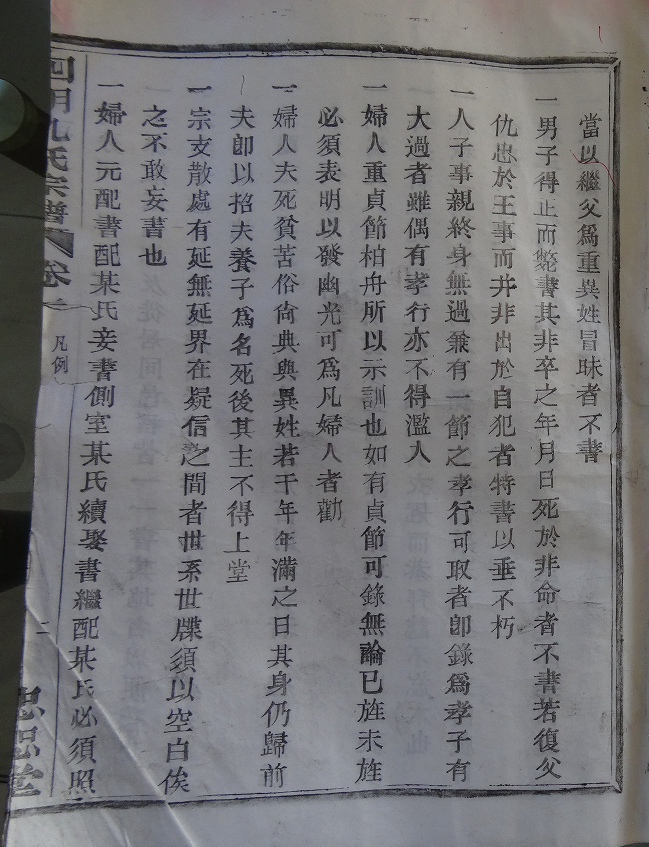 當以繼父爲重異姓冒昧者不書
一男子得正而斃書其非卒之年月日死於非命者不書若復父
仇忠於王事而并非出於自犯者特書以垂不朽
一人子事親終身無過兼有一節之孝行可取者卽錄爲孝子有
大過者雖偶有孝行亦不得濫入
一婦人重貞節柏舟所以示訓也如有貞節可錄無論已旌未旌
必須表明以發幽光可爲凡婦人者勸
一婦人夫死貧苦俗尙典與異姓若干年年滿之日其身仍歸前
夫卽以招夫養子爲名死後其主不得上堂
一宗支散處有延無延界在疑信之間者世系世牒須以空白俟
之不敢妄書也
一婦人元配書配某氏妾書側室某氏續娶書繼配某氏必須照
氏宗譜 卷一 凡例 二 忠恕堂